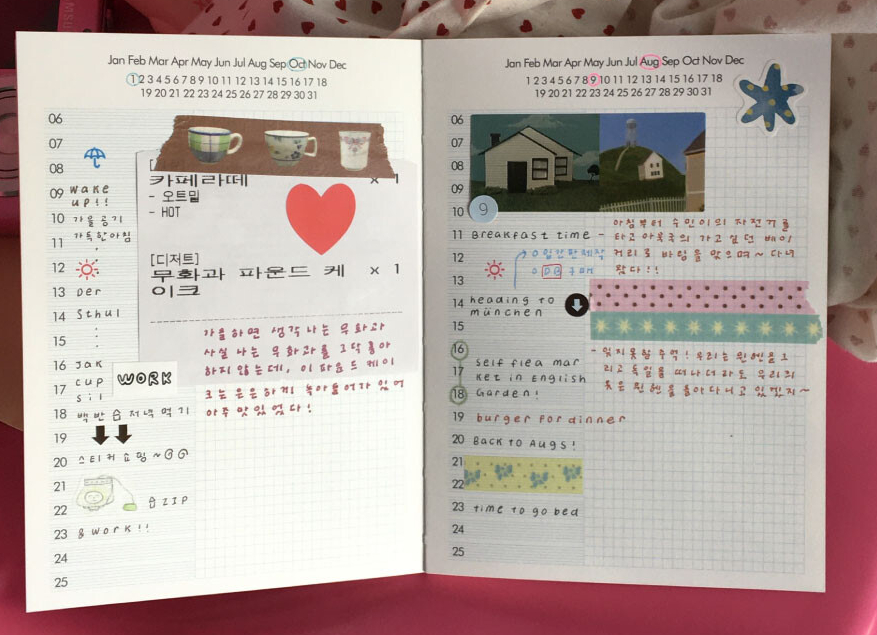 Jan Feb Mar Apr May Jun Jul Aug Sep Oct Nov Dec
1 2 3 4 5 6 7 8 9 10 11 12 13 14 15 16 17 18
19 20 21 22 23 24 25 26 27 28 29 30 31
06
07
08
09 wake
up!!
10 가을공기
11 가득한아침
12
13 Der
14 Sthul
15
16 Jak
17 cup
Sil
WORK
18 백반 습 저녁 먹기
19
20 스티커 쇼핑~
21
22 ZIP
23 & work!!
24
25
카페라떼 x 1
- 오트밀
- HOT
[디저트]
무화과 파운드 케 x 1
이크
가을하면 생각나는 무화과
사실 나는 무화과를 그닥 좋아
하지 않는데, 이 파운드 케이
크는 은은하게 녹아들어가 있어
아주 맛있었다!
Jan Feb Mar Apr May Jun Jul Aug Sep Oct Nov Dec
1 2 3 4 5 6 7 8 9 10 11 12 13 14 15 16 17 18
19 20 21 22 23 24 25 26 27 28 29 30 31
06
07
08
09
10
9
11 Breakfast time -
12
13
14 heading to
münchen
15
16
17 self flea mar
ket in English
18 Garden!
19 burger for dinner
20 Back to Augs!
21
22
23 time to go bed
24
25
아침부터 수민이의 자전거를
타고 아욱국의 가고 싶던 베이
커리로 바람을 맞으며~ 다녀
왔다!!
- 잊지못할 추억! 우리는 뮌헨을 그
리고 독일을 떠나더라도 우리의
옷은 뮌헨을 돌아다니고 있겠지~